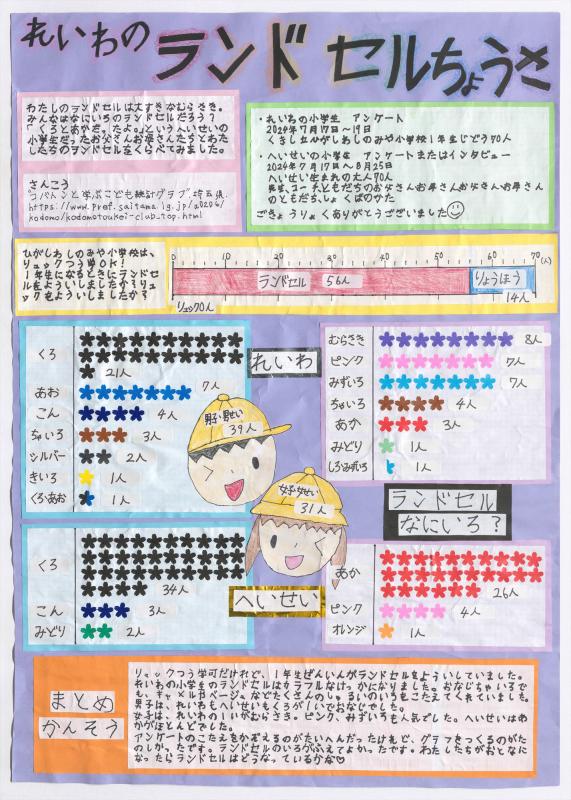 れいわの ランドセルちょうさ
わたしのランドセルは大すきなむらさき。
みんなはなにいろのランドセルだろう?
「くろとあかだったよ。」というへいせいの
小学生だったお父さんお母さんたちとわた
したちのランドセルをくらべてみました。
さんこう
コバトンと学ぶこども統計グラフ 埼玉県
https://www.pref.saitama.lg.jp/a0206/
kodomo/kodomotoukei-club_top.html
・れいわの小学生 アンケート
2024年7月17日~19日
ひがしあしのみや小学校1年生じどう70人
・へいせいの小学生 アンケートまたはインタビュー
2024年7月17日~8月25日
へいせい生まれの大人70人
先生、コーチ、ともだちのお父さんお母さん、お父さんお母さん
のともだち、しょくばのかた
ごきょうりょくありがとうございました
ひがしあしのみや小学校は、
リュックつう学OK!
1年生になるときにランドセ
ルをよういしましたか?リュ
ックをよういしましたか?
0 10 20 30 40 50 60 70(人)
ランドセル 56人
りょうほう
14人
リュック0人
れいわ
くろ 21人
あお 7人
こん 4人
ちゃいろ 3人
シルバー 2人
きいろ 1人
くろ・あお 1人
男子・男せい
39人
むらさき 8人
ピンク 7人
みずいろ 7人
ちゃいろ 4人
あか 3人
みどり 1人
しろ・みずいろ 1人
女子・女せい
31人
ランドセル
なにいろ?
へいせい
くろ 34人
こん 3人
みどり 2人
あか 26人
ピンク 4人
オレンジ 1人
まとめ
かんそう
リュックつう学可だけれど、1年生ぜんいんがランドセルをよういしていました。
れいわの小学生のランドセルはカラフルなけっかになりました。おなじちゃいろで
も、キャメルやベージュなどたくさんのしゅるいのいろをこたえてくれていました。
男子は、れいわもへいせいもくろが1いでおなじでした。
女子は、れいわの1いがむらさき。ピンク、みずいろも人気でした。へいせいはあ
かがほとんどでした。
アンケートのこたえをかぞえるのがたいへんだったけれど、グラフをつくるのがた
のしかったです。ランドセルのいろがふえてよかったです。わたしたちがおとなに
なったらランドセルはどうなっているかな♡